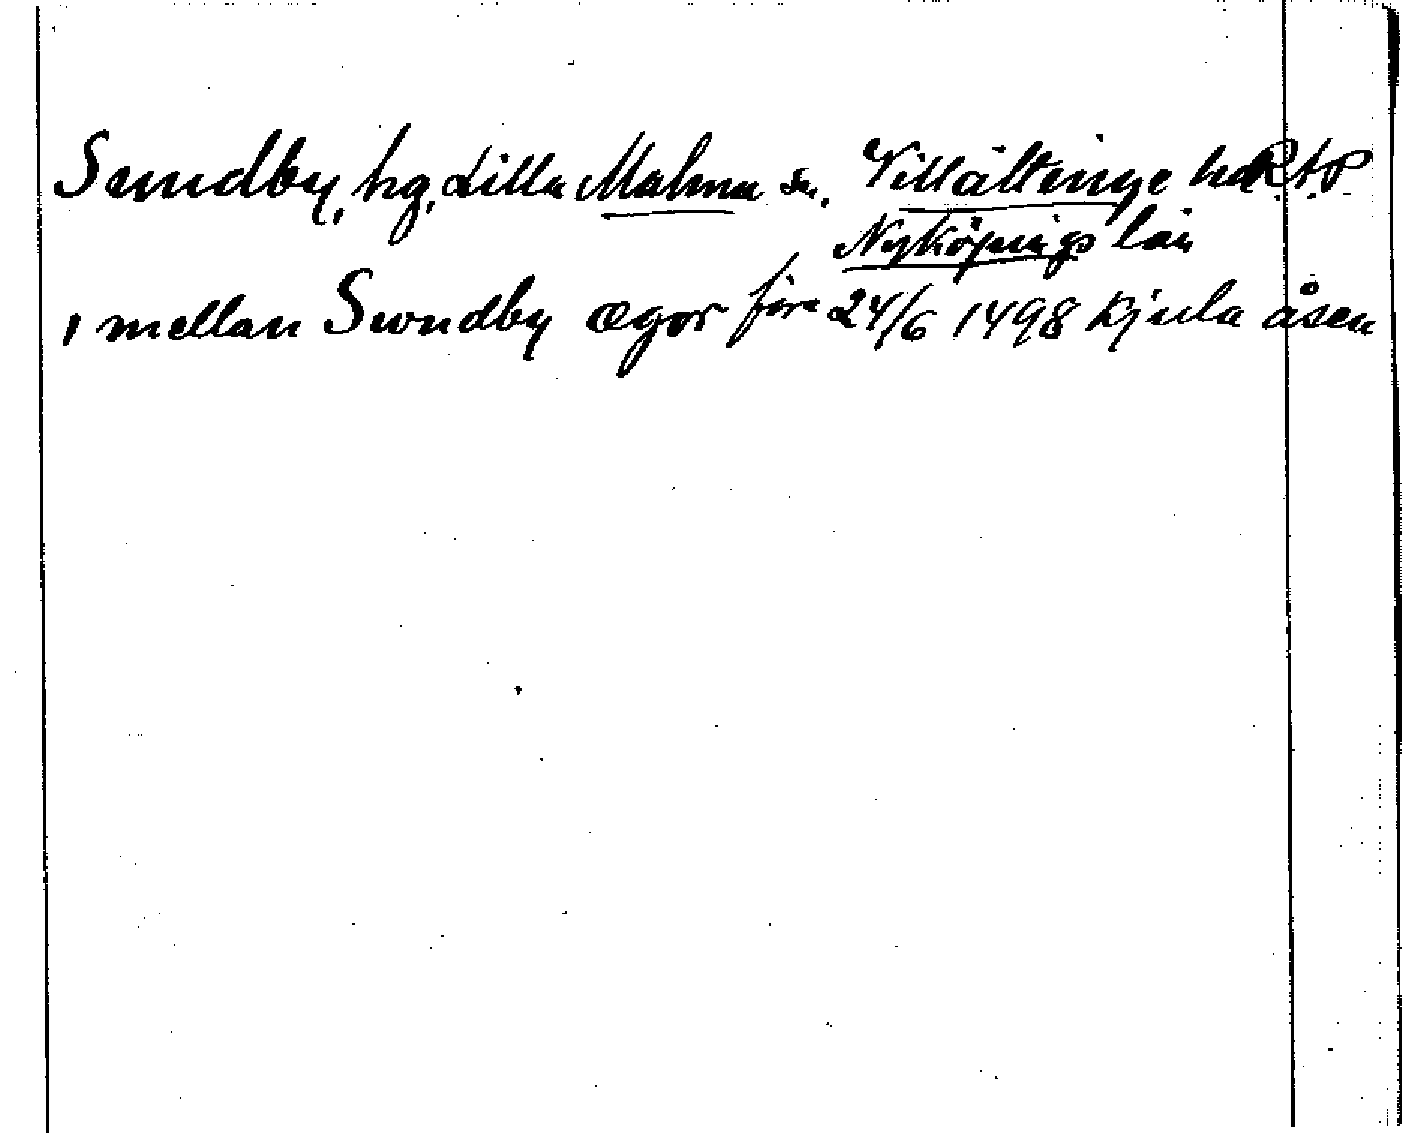 Sundby, hg, Lilla Malma sn, Villåttinge hd RAP
Nyköpings län
, mellan Swndby ægor före 24/6 1498 Kjula åsen